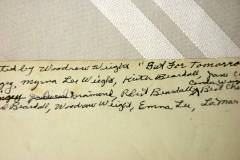 ted by Woodrow Wright "But For Tomorrow
Myrna Lee Wright, Keith Beardall, Jane
Drummond, Robert Beardall,
Beardall, Woodrow Wright, Emma Lee, LaMar